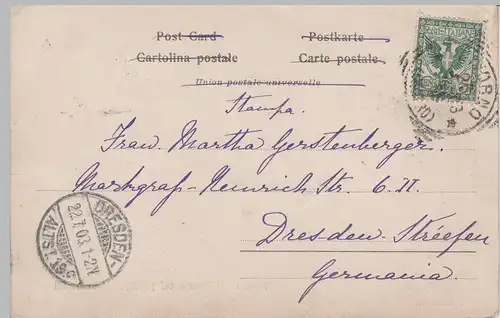 Post Card
Postkarte
Cartolina postale
Carte postale
Union postale universelle
Stampa.
Frau Martha Gerstenberger.
Markgraf-Heinrich Str. 6. II.
Dresden-Striesen
Germania.
DRESDEN-
22.7.03. 1-2N
ALTST. 19.c